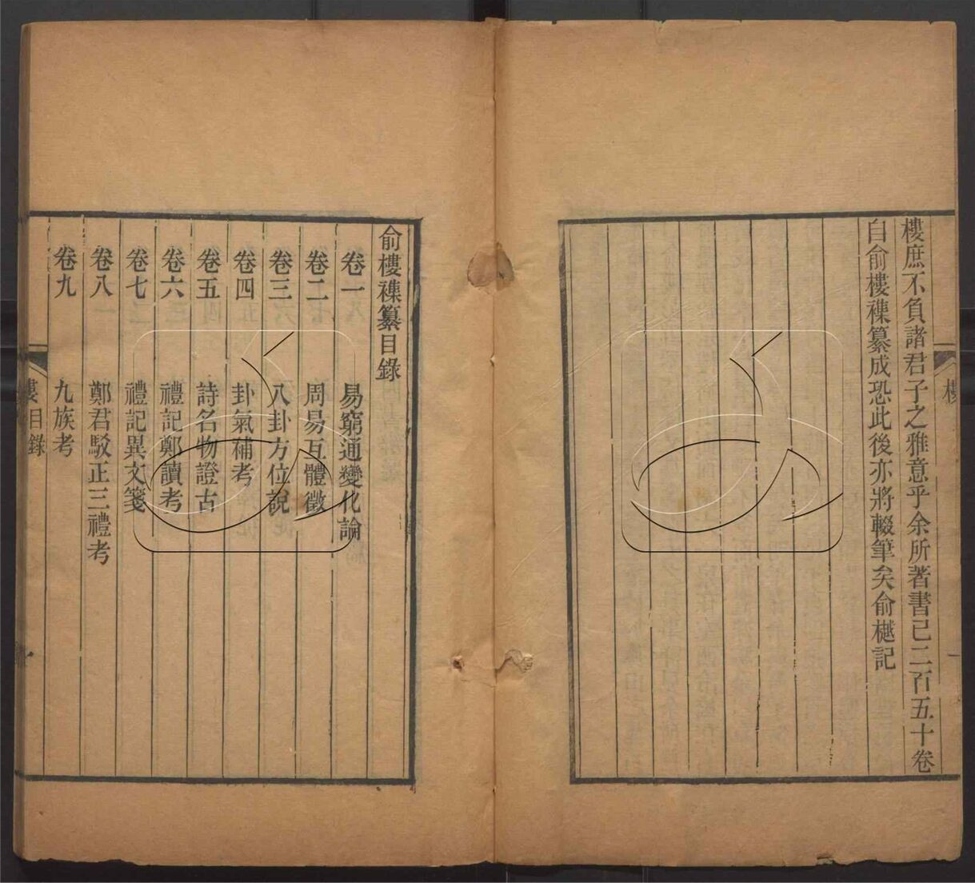 樓庶不負諸君子之雅意乎余所著書已二百五十卷
自俞樓襍纂成恐此後亦將輟筆矣俞樾記
樓
俞樓襍纂目錄
卷一 易窮通變化論
卷二 周易互體徵
卷三 八卦方位說
卷四 卦氣續考
卷五 詩名物證古
卷六 禮記鄭讀考
卷七 禮記異文箋
卷八 鄭君駁正三禮考
卷九 九族考
樓目錄